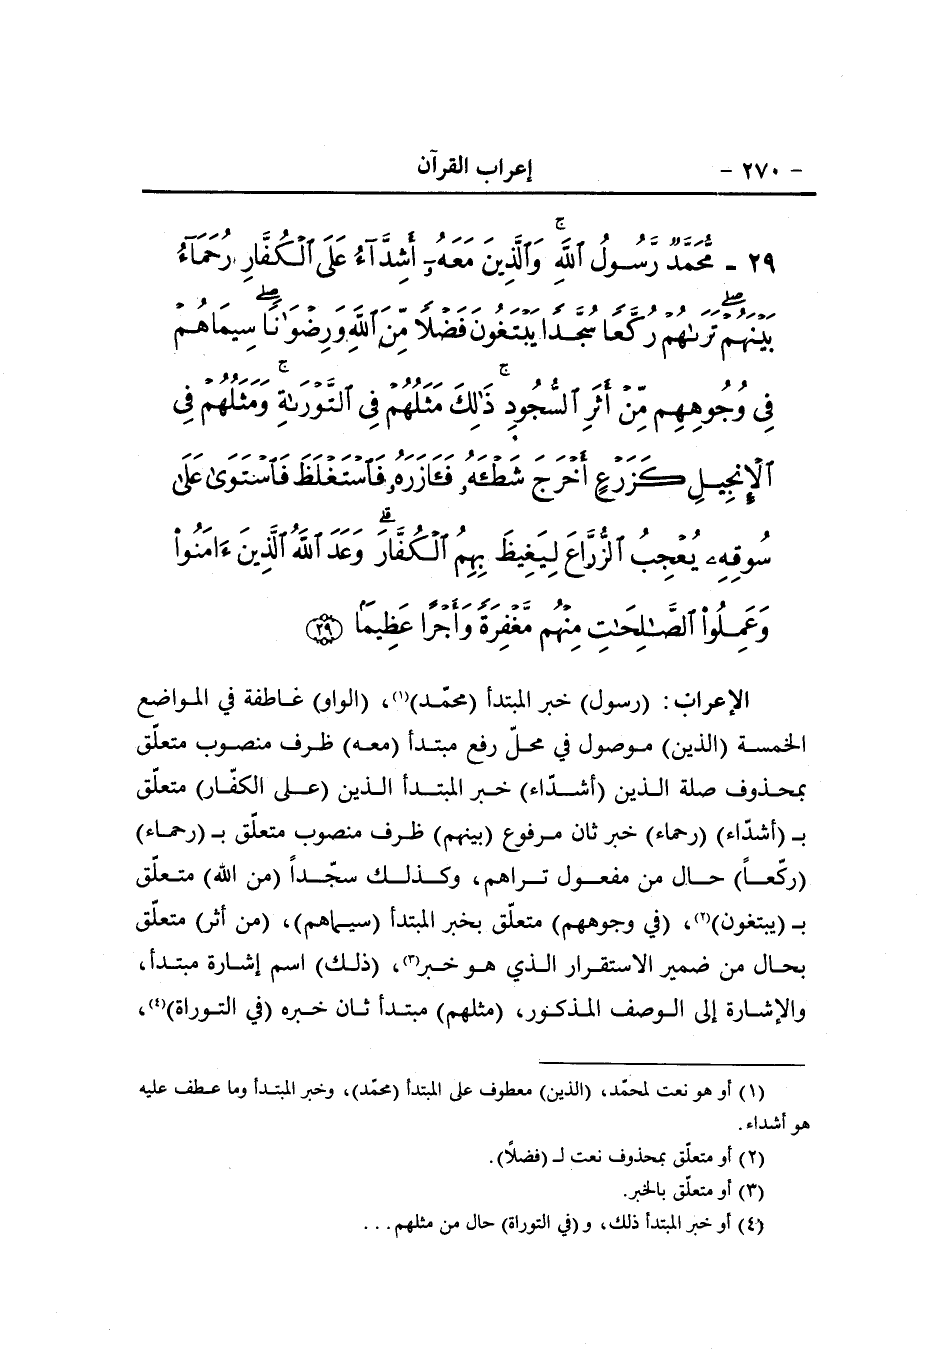 - ٢٧٠ - إعراب القرآن
٢٩ - مُّحَمَّدٌ رَّسُولُ ٱللَّهِۚ وَٱلَّذِينَ مَعَهُۥٓ أَشِدَّآءُ عَلَى ٱلْكُفَّارِ رُحَمَآءُ
بَيْنَهُمْۖ تَرَىٰهُمْ رُكَّعًا سُجَّدًا يَبْتَغُونَ فَضْلًا مِّنَ ٱللَّهِ وَرِضْوَٰنًاۖ سِيمَاهُمْ
فِى وُجُوهِهِم مِّنْ أَثَرِ ٱلسُّجُودِۚ ذَٰلِكَ مَثَلُهُمْ فِى ٱلتَّوْرَىٰةِۚ وَمَثَلُهُمْ فِى
ٱلْإِنجِيلِ كَزَرْعٍ أَخْرَجَ شَطْـَٔهُۥ فَـَٔازَرَهُۥ فَٱسْتَغْلَظَ فَٱسْتَوَىٰ عَلَىٰ
سُوقِهِۦ يُعْجِبُ ٱلزُّرَّاعَ لِيَغِيظَ بِهِمُ ٱلْكُفَّارَۗ وَعَدَ ٱللَّهُ ٱلَّذِينَ ءَامَنُوا۟
وَعَمِلُوا۟ ٱلصَّـٰلِحَـٰتِ مِنْهُم مَّغْفِرَةً وَأَجْرًا عَظِيمًۢا ﴿٢٩﴾
الإعراب : (رسول) خبر المبتدأ (محمّد)(١)، (الواو) عاطفة في المواضع
الخمسة (الذين) موصول في محلّ رفع مبتدأ (معه) ظرف منصوب متعلّق
بمحذوف صلة الذين (أشدّاء) خبر المبتدأ الذين (على الكفّار) متعلّق
بـ (أشدّاء) (رحماء) خبر ثان مرفوع (بينهم) ظرف منصوب متعلّق بـ (رحماء)
(ركّعاً) حال من مفعول تراهم، وكذلك سجّداً (من الله) متعلّق
بـ (يبتغون)(٢)، (في وجوههم) متعلّق بخبر المبتدأ (سيماهم)، (من أثر) متعلّق
بحال من ضمير الاستقرار الذي هو خبر(٣)، (ذلك) اسم إشارة مبتدأ،
والإشارة إلى الوصف المذكور، (مثلهم) مبتدأ ثان خبره (في التوراة)(٤)،
(١) أو هو نعت لمحمّد، (الذين) معطوف على المبتدأ (محمّد)، وخبر المبتدأ وما عطف عليه
هو أشداء.
(٢) أو متعلّق بمحذوف نعت لـ (فضلاً).
(٣) أو متعلّق بالخبر.
(٤) أو خبر المبتدأ ذلك، و (في التوراة) حال من مثلهم ...